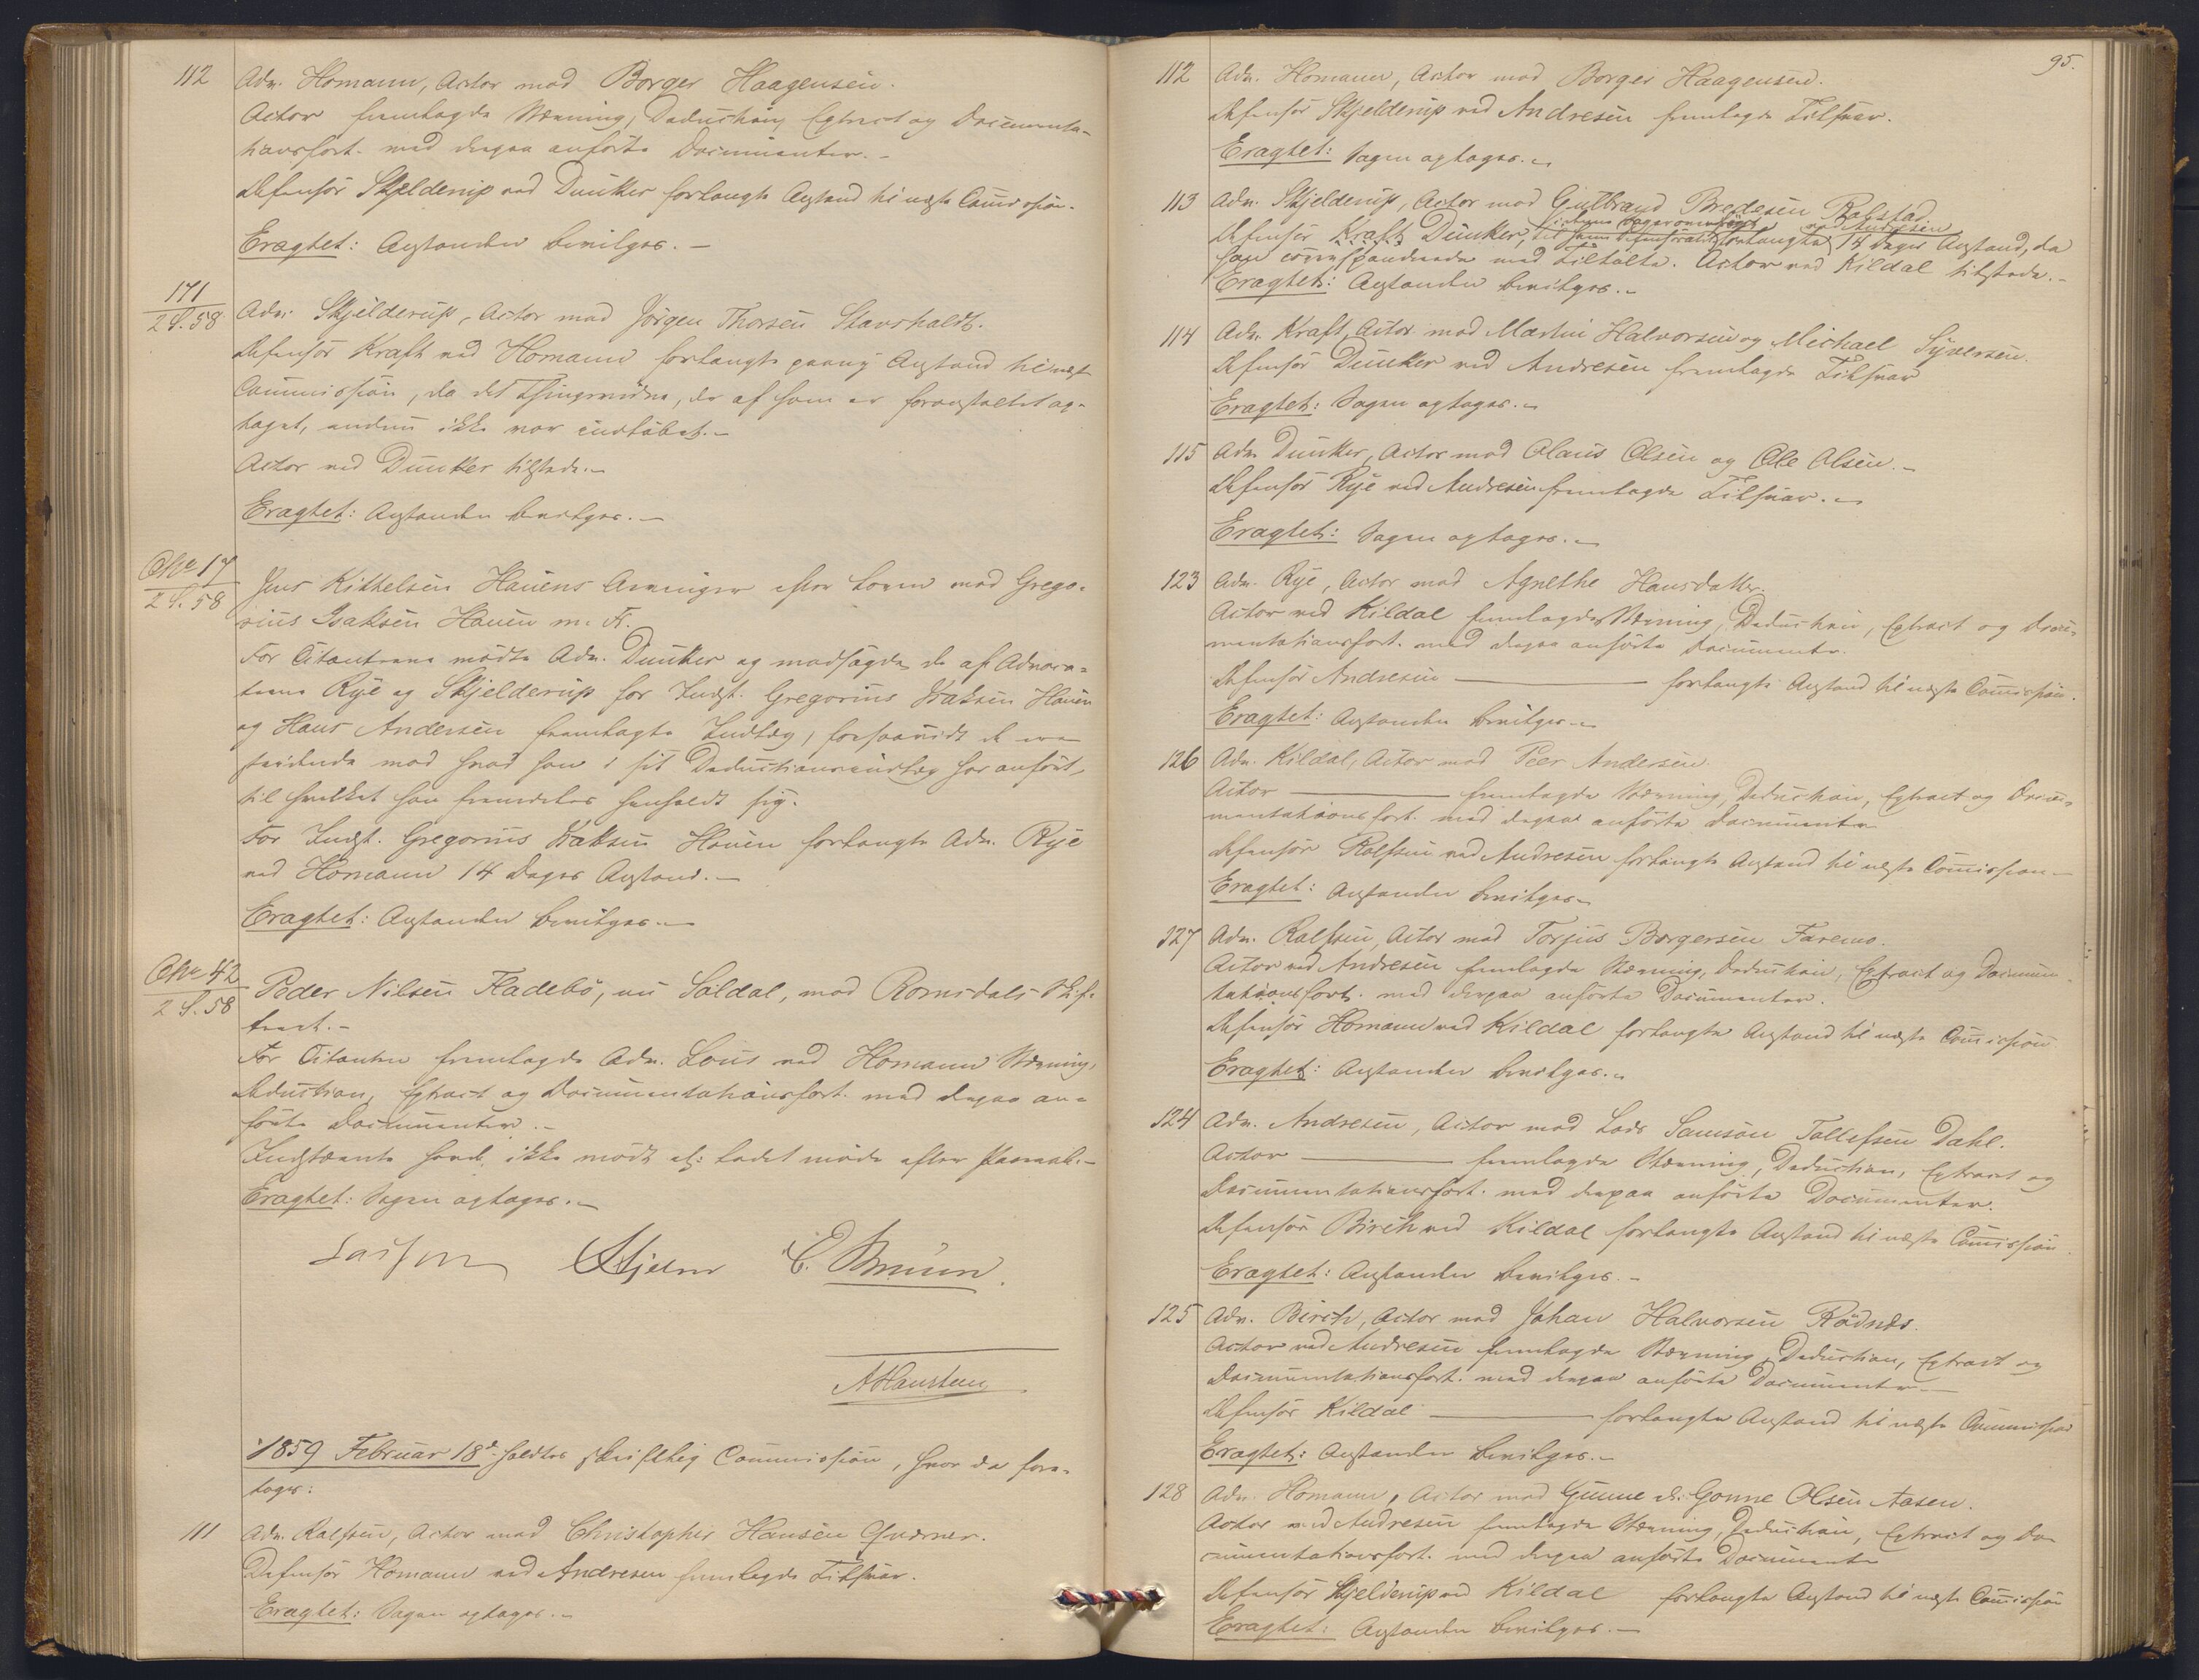 112 Adv. Homann, Actor mod Borger Haagensen.
Actor fremlagde Stævning, Deduction, Extract og Documenta-
tionsfort. med derpaa anførte Documenter.-
Defensor Skjelderup ved Dunker forlangte Anstand til næste Commission.
Eragtet: Anstanden bevilges.-
171
2 S. 58 Adv. Skjelderup, Actor mod Jørgen Thorsen Stavshaldt.
Defensor Kraft ved Homann forlangte paany Anstand til næste
Commission, da det Thingsvidne, der af ham er foranstaltet op-
taget, endnu ikke var indløbet.-
Actor ved Dunker tilstede.-
Eragtet: Anstanden bevilges.-
No 17
2 S. 58 Jens Kittelsen Hauens Arvinger efter Loven mod Grego-
rius Isaksen Hauen m. Fl.
For Citanterne mødte Adv. Dunker og modsagde de af Advoca-
terne Rye og Skjelderup for Indst. Gregorius Isaksen Hauen
og Hans Andersen fremlagte Indlæg, forsaavidt de ere
stridende mod hvad han i sit Deductionsindlæg har anført,
til hvilket han fremdeles henholdt sig.
For Indst. Gregorius Isaksen Hauen forlangte Adv. Rye
ved Homann 14 Dages Anstand.-
Eragtet: Anstanden bevilges.-
No 42
2 S. 58 Peder Nilsen Fladebø, nu Søldal, mod Romsdals Skif-
teret.-
For Citanten fremlagde Adv. Lous ved Homann Stævning,
Deduction, Extract og Documentationsfort. med derpaa an-
førte Documenter.-
Indstævnte havde ikke mødt ell: ladet møde efter Paaraab.-
Eragtet: Sagen optages.-
Lasson Hjelm C. Bruun.
A Hansteen
1859 Februar 18de holdtes skriftlig Commission, hvor da fore-
toges:
111 Adv. Rolfsen, Actor mod Christopher Hansen Qværner.
Defensor Homann ved Andresen fremlagde Tilsvar.
Eragtet: Sagen optages.-
95.
112 Adv. Homann, Actor mod Borger Haagensen.
Defensor Skjelderup ved Andresen fremlagde Tilsvar.
Eragtet: Sagen optages.-
113 Adv. Skjelderup, Actor mod Gulbrand Bredesen Rolstad.
ved Andresen
Defensor Kraft Dunker, forlangte 14 Dages Anstand, da
han corresponderede med Tiltalte. Actor ved Kildal tilstede.-
Eragtet: Anstanden bevilges.-
114 Adv. Kraft, Actor mod Martin Halvorsen og Michael Syversen.
Defensor Dunker ved Andresen fremlagde Tilsvar
Eragtet: Sagen optages.-
115 Adv. Dunker, Actor mod Olaus Olsen og Ole Olsen.-
Defensor Rye ved Andresen fremlagde Tilsvar.-
Eragtet: Sagen optages.-
123 Adv. Rye, Actor mod Agnethe Hansdatter.
Actor ved Kildal fremlagde Stævning, Deduction, Extract og Docu-
mentationsfort. med derpaa anførte Documenter.
Defensor Andresen — forlangte Anstand til næste Commission.
Eragtet: Anstanden bevilges.-
126 Adv. Kildal, Actor mod Peer Andersen.
Actor — fremlagde Stævning, Deduction, Extract og Docu-
mentationsfort. med derpaa anførte Documenter
Defensor Rolfsen ved Andresen forlangte Anstand til næste Commission-
Eragtet: Anstanden bevilges.-
127 Adv. Rolfsen, Actor mod Torjus Borgersen Faremo.
Actor ved Andresen fremlagde Stævning, Deduction, Extract og Documen-
tationsfort. med derpaa anførte Documenter.
Defensor Homann ved Kildal forlangte Anstand til næste Commission
Eragtet: Anstanden bevilges.-
124 Adv. Andresen, Actor mod Lods Samson Tollefsen Dahl.
Actor — fremlagde Stævning, Deduction, Extract og
Documentationsfort. med derpaa anførte Documenter.
Defensor Birch ved Kildal forlangte Anstand til næste Commission.
Eragtet: Anstanden bevilges.-
125 Adv. Birch, Actor mod Johan Halvorsen Rødnæs.
Actor ved Andresen fremlagde Stævning, Deduction, Extract og
Documentationsfort. med derpaa anførte Documenter-
Defensor Kildal — forlangte Anstand til næste Commission
Eragtet: Anstanden bevilges.-
128 Adv. Homann, Actor mod Gunne ell: Gonne Olsen Aasen.
Actor ved Andresen fremlagde Stævning, Deduction, Extract og Do-
cumentationsfort. med derpaa anførte Documenter
Defensor Skjelderup ved Kildal forlangte Anstand til næste Commission
Eragtet: Anstanden bevilges.-